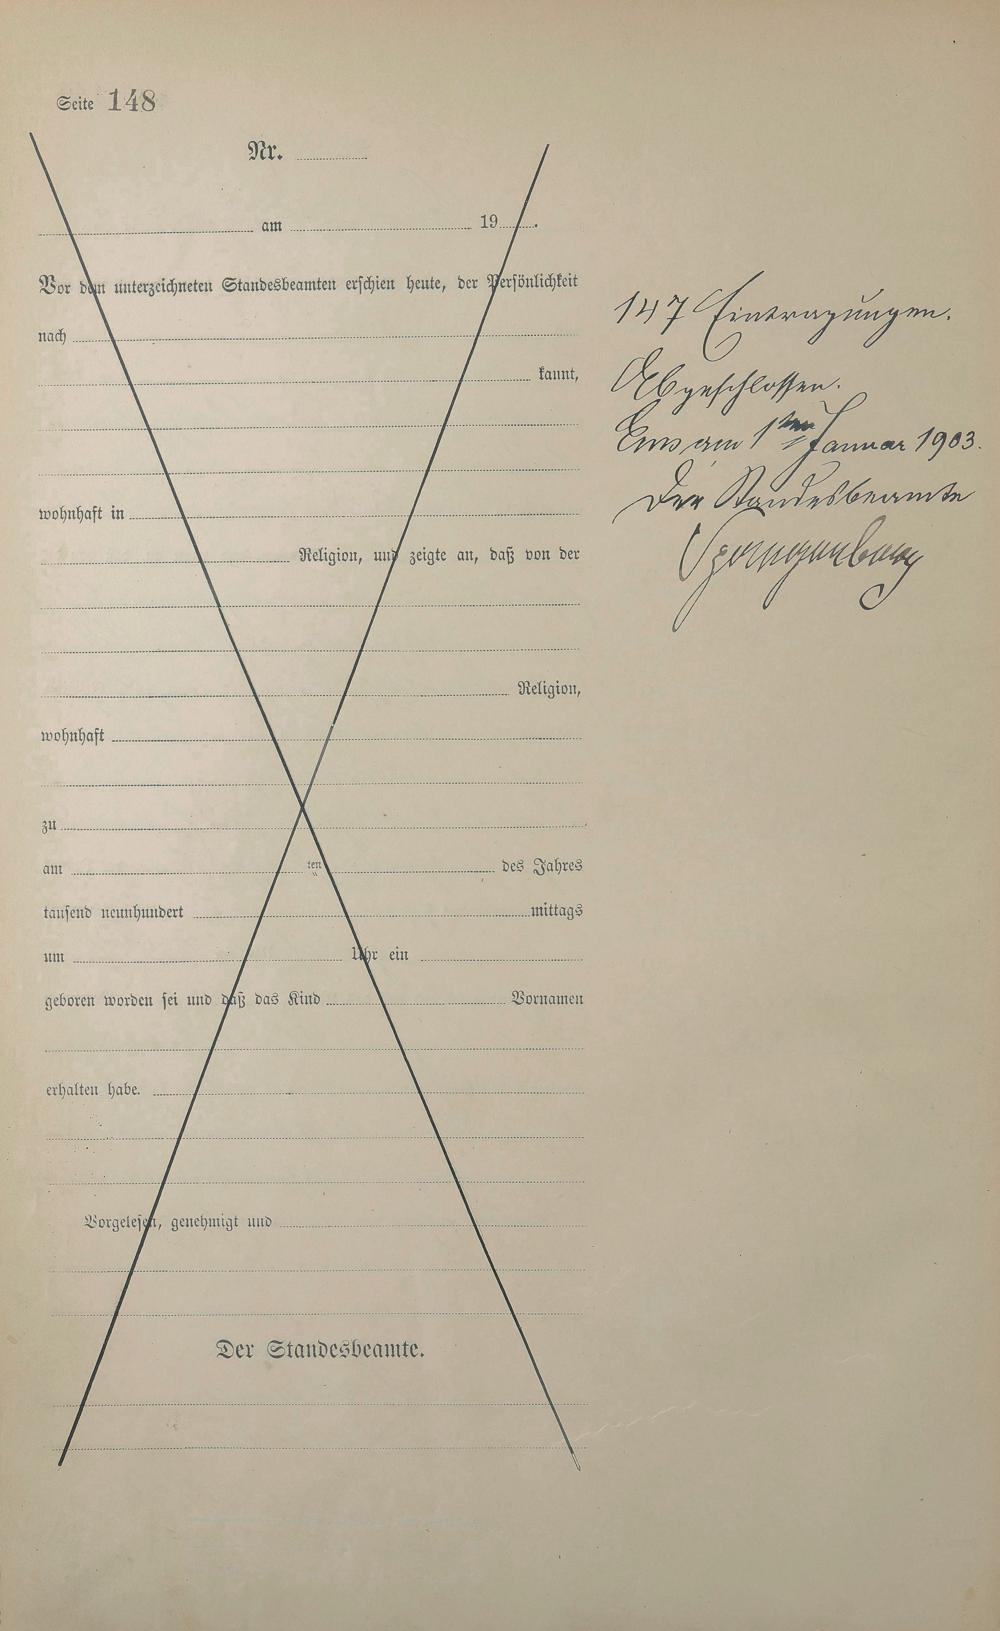 Seite 148
Nr.
am 19 .
Vor dem unterzeichneten Standesbeamten erschien heute, der Persönlichkeit
nach
kannt,
wohnhaft in
Religion, und zeigte an, daß von der
Religion,
wohnhaft
zu
am ten des Jahres
tausend neunhundert mittags
um Uhr ein
geboren worden sei und daß das Kind Vornamen
erhalten habe.
Vorgelesen, genehmigt und
Der Standesbeamte.
147 Eintragungen.
Abgeschlossen.
Ems am 1ten Januar 1903.
Der Standesbeamte